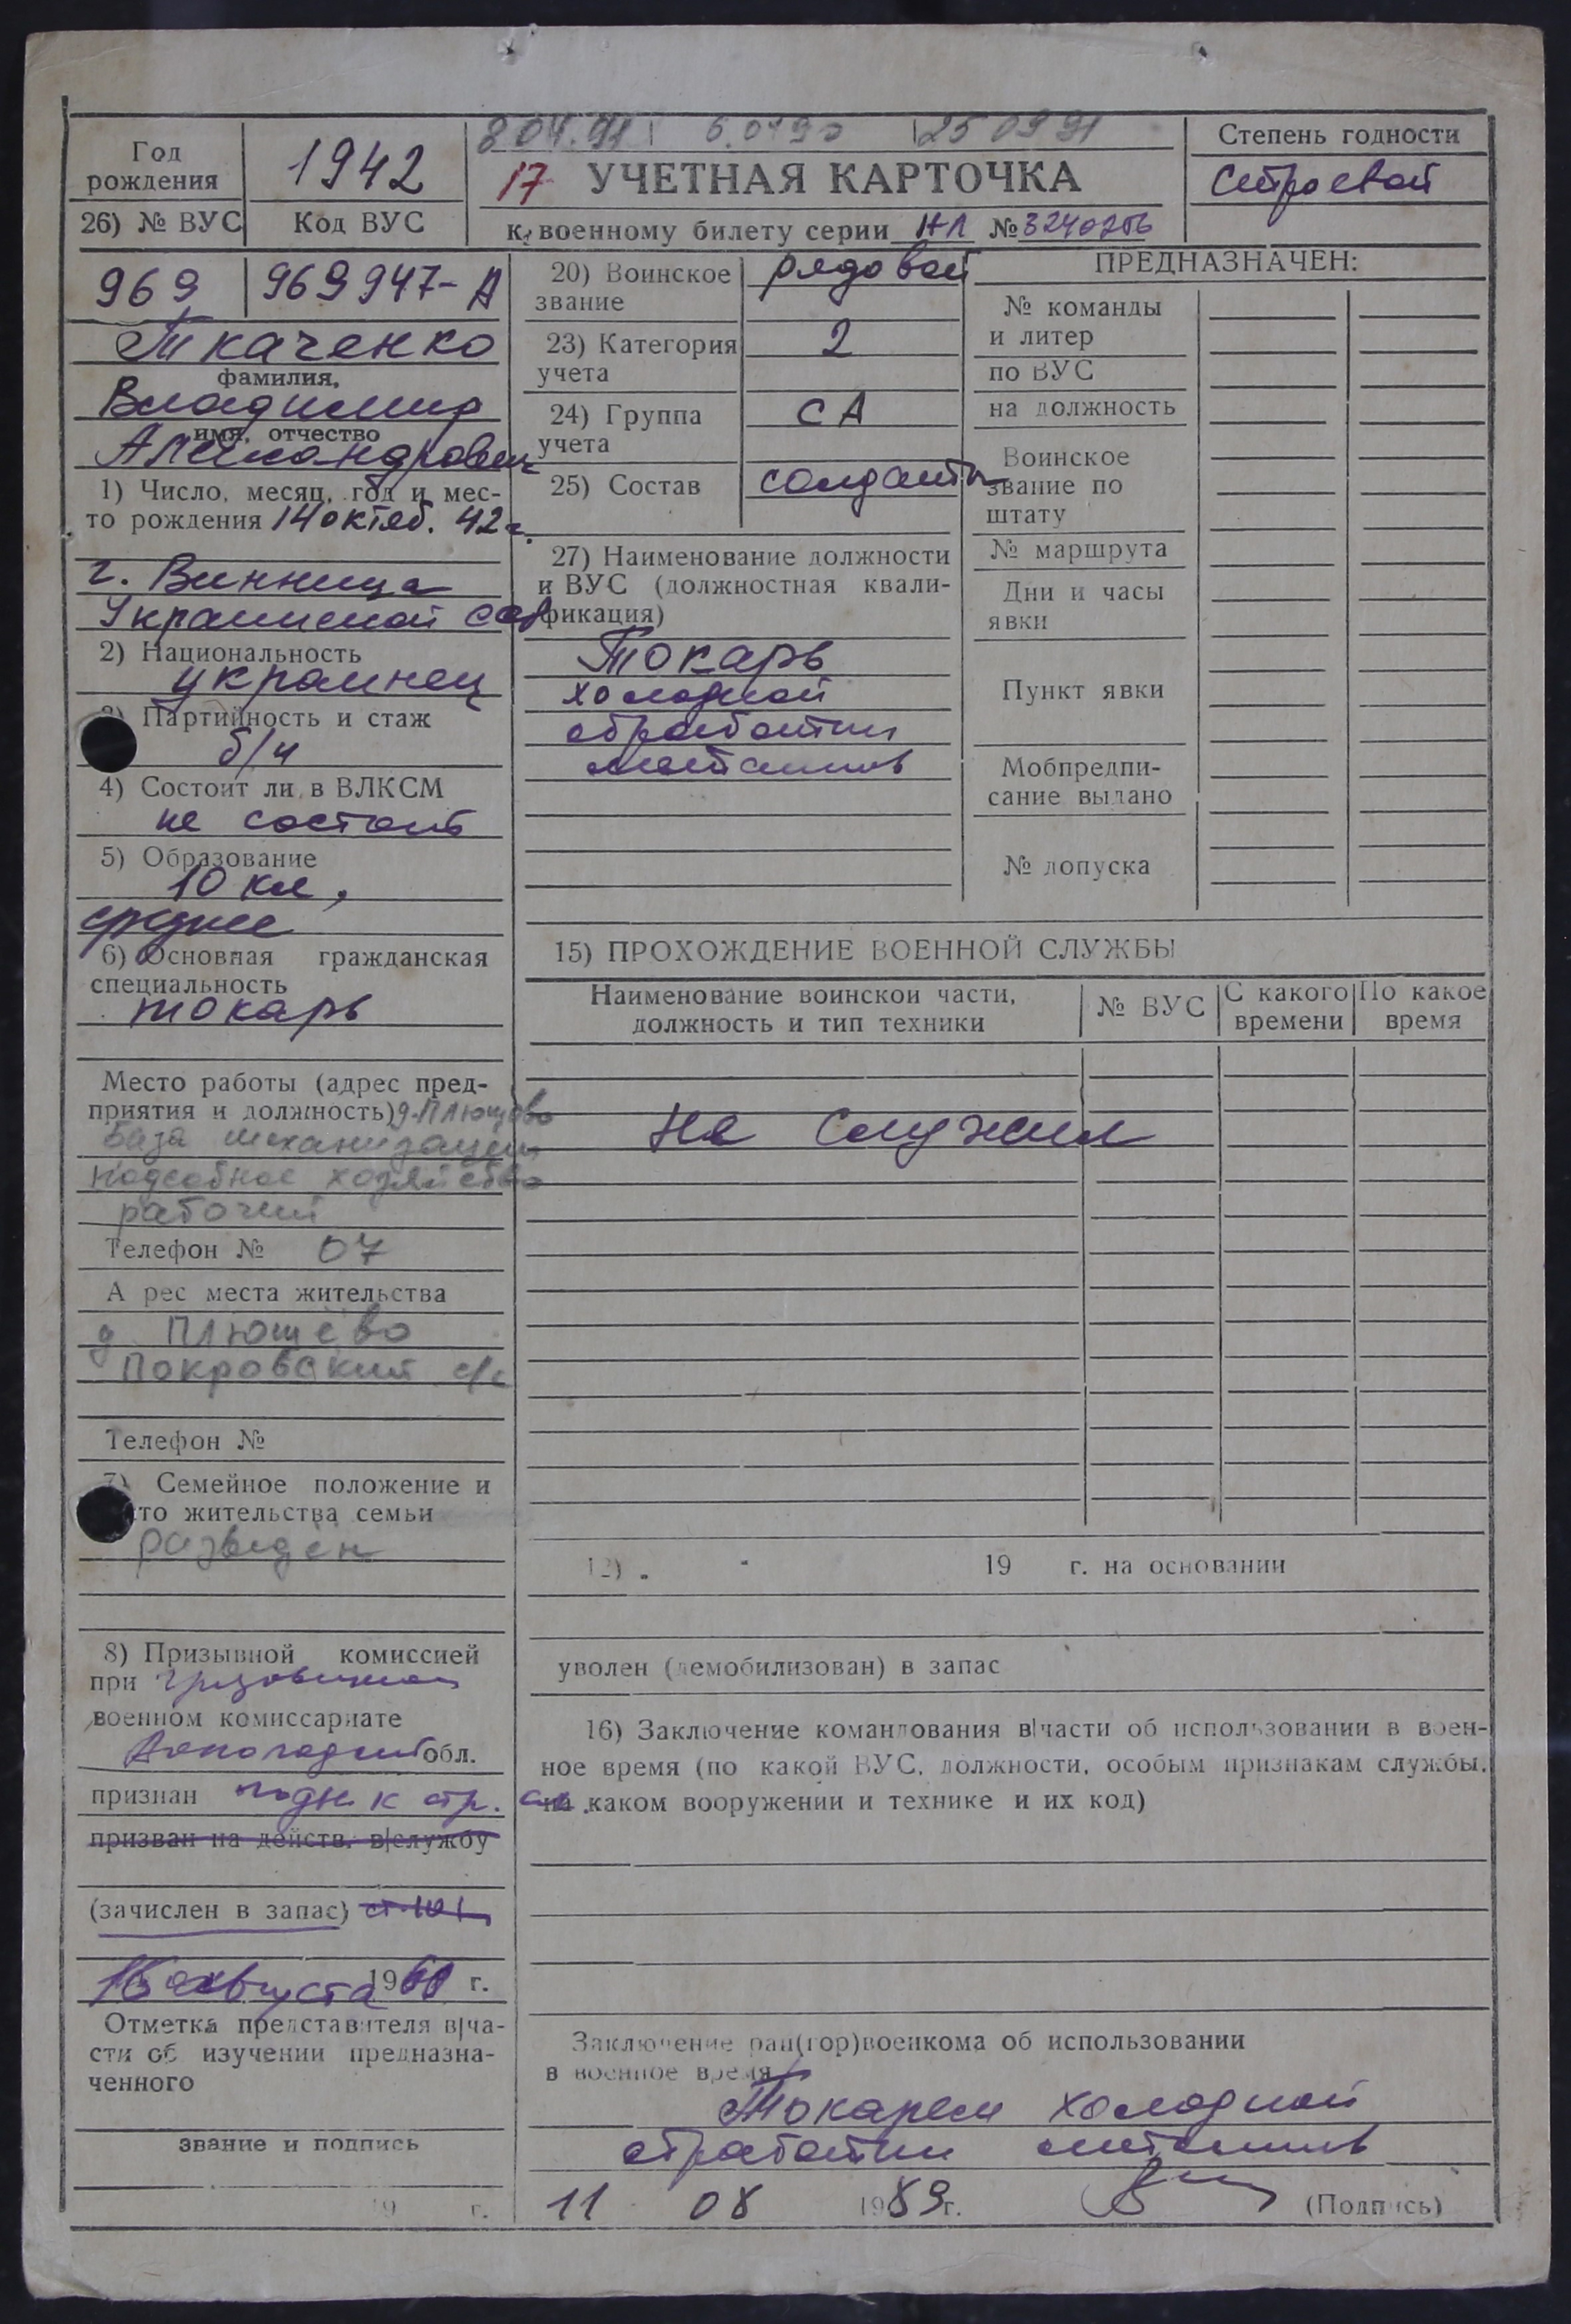 8 04.91 6.0490 25 09 91
Год рождения
1942
17 УЧЕТНАЯ КАРТОЧКА
к военному билету серии НЛ № 3240256
Степень годности
Строевой
26) № ВУС
Код ВУС
969
969947-А
Ткаченко
фамилия,
Владимир
имя, отчество
Александрович
1) Число, месяц, год и мес-
то рождения 14 октяб. 42 г.
г. Винница
Украинской ССР
2) Национальность
украинец
3) Партийность и стаж
б/п
4) Состоит ли в ВЛКСМ
не состоит
5) Образование
10 кл,
среднее
6) Основная гражданская
специальность
токарь
Место работы (адрес пред-
приятия и должность) д. Плющёво
база механизации
подсобное хозяйство
рабочий
Телефон № 07
А рес места жительства
д Плющёво
Покровский с/с
Телефон №
7) Семейное положение и
то жительства семьи
разведён
8) Призывной комиссией
при
военном комиссариате
обл.
признан годн. к стр. сл.
призван на действ. в|службу
(зачислен в запас)
августа 19 г.
Отметка представителя в|ча-
сти об изучении предназна-
ченного
звание и подпись
19 г.
20) Воинское
звание
рядовой
23) Категория
учета
2
24) Группа
учета
СА
25) Состав
солдаты
27) Наименование должности
и ВУС (должностная квали-
фикация)
Токарь
холодной
обработки
металлов
ПРЕДНАЗНАЧЕН:
№ команды
и литер
по ВУС
на должность
Воинское
звание по
штату
№ маршрута
Дни и часы
явки
Пункт явки
Мобпредпи-
сание выдано
№ допуска
15) ПРОХОЖДЕНИЕ ВОЕННОЙ СЛУЖБЫ
Наименование воинской части,
должность и тип техники
№ ВУС
С какого
времени
По какое
время
Не служил
12) 19 г. на основании
уволен (демобилизован) в запас
16) Заключение командования в|части об использовании в воен-
ное время (по какой ВУС, должности, особым признакам службы,
на каком вооружении и технике и их код)
Заключение рай(гор)военкома об использовании
в военное время
Токарем холодной
обработки металлов
11 08 1989 г.
(Подпись)